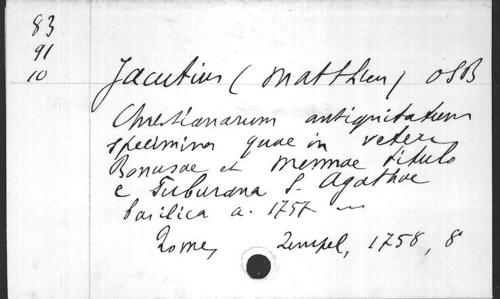 83
91
10
Jacutius (Matthieu) OSB
Christianarum antiquitatum
specimina quae in vetere
Bonusae et Mennae titulo
e Suburana S. Agathae
basilica a. 1757
Rome, Zempel, 1758, 8°